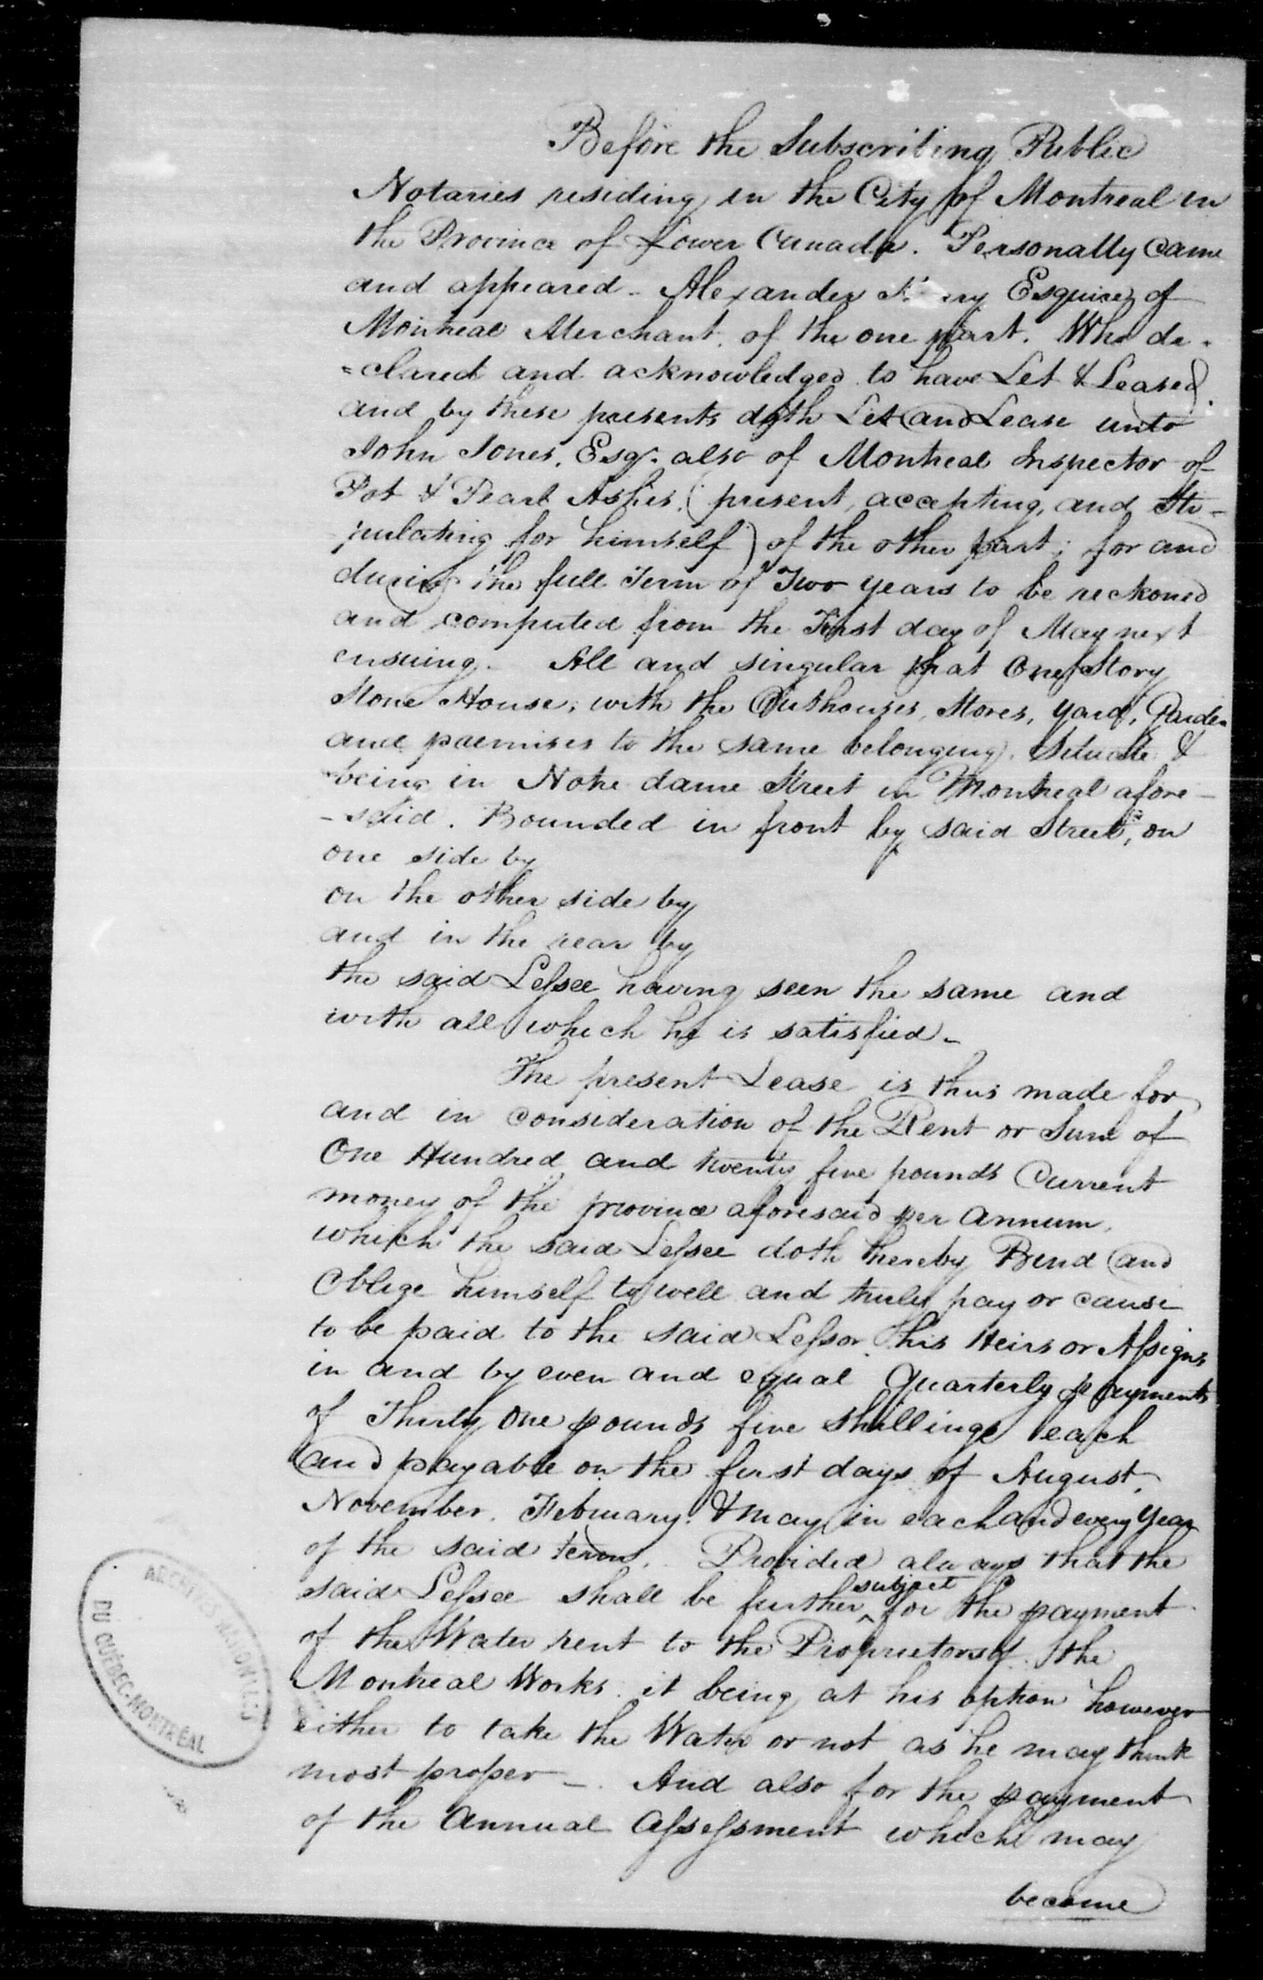 Before the Subscribing Public
Notaries residing in the City of Montreal in
the Province of Lower Canada. Personally Came
and appeared - Alexander Esquire, of
Montreal Merchant, of the one part. Who de-
=clared and acknowledged to have Let & Leased,
and by these presents doth Let and Lease unto
John Jones, Esqr. also of Montreal Inspector of
Pot & Pearl Ashes, (present, accepting, and sti-
pulating for himself) of the other part; for and
during the full Term of Two years to be reckoned
and computed from the First day of May next
ensuing. All and singular that One Story
Stone House, with the Outhouses, Stores, Yard, Garden
and premises to the same belonging, Situate &
being in Notre dame Street in Montreal afore-
-said. Bounded in front by said Street, on
one side by
on the other side by
and in the rear by
the said Lessee having seen the same and
with all which he is satisfied -
The present Lease is thus made for
and in consideration of the Rent or Sum of
One Hundred and twenty five pounds Current
money of the province aforesaid per annum,
which the said Lessee doth hereby Bind and
Oblige himself to well and truly pay or cause
to be paid to the said Lessor, his Heirs or Assigns
in and by even and equal Quarterly payments
of Thirty One pounds five shillings each
and payable on the first days of August,
November, February, & May in each and every Year
of the said term. Provided always that the
said Lessee shall be further ^subject for the payment
of the Water rent to the Proprietors of the
Montreal Works, it being at his option however
either to take the Water or not as he may think
most proper - And also for the payment
of the Annual Assessment which may
become
ARCHIVES NATIONALES
DU QUÉBEC-MONTRÉAL